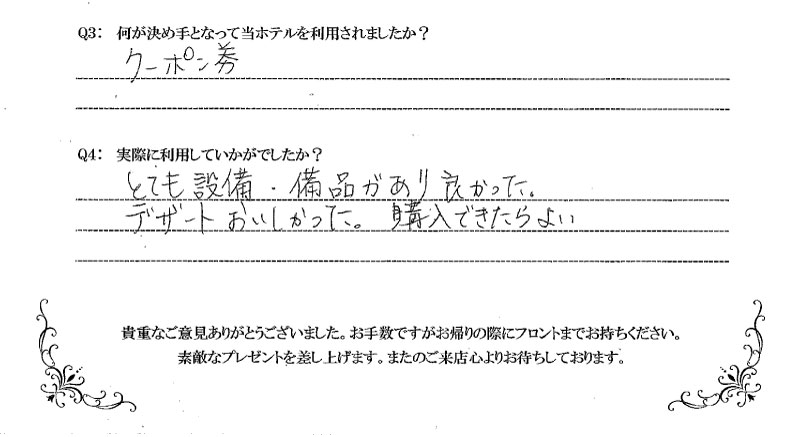 Q3： 何が決め手となって当ホテルを利用されましたか？
クーポン券
Q4： 実際に利用していかがでしたか？
とても設備・備品があり良かった。
デザートおいしかった。購入できたらよい
貴重なご意見ありがとうございました。お手数ですがお帰りの際にフロントまでお持ちください。
素敵なプレゼントを差し上げます。またのご来店心よりお待ちしております。